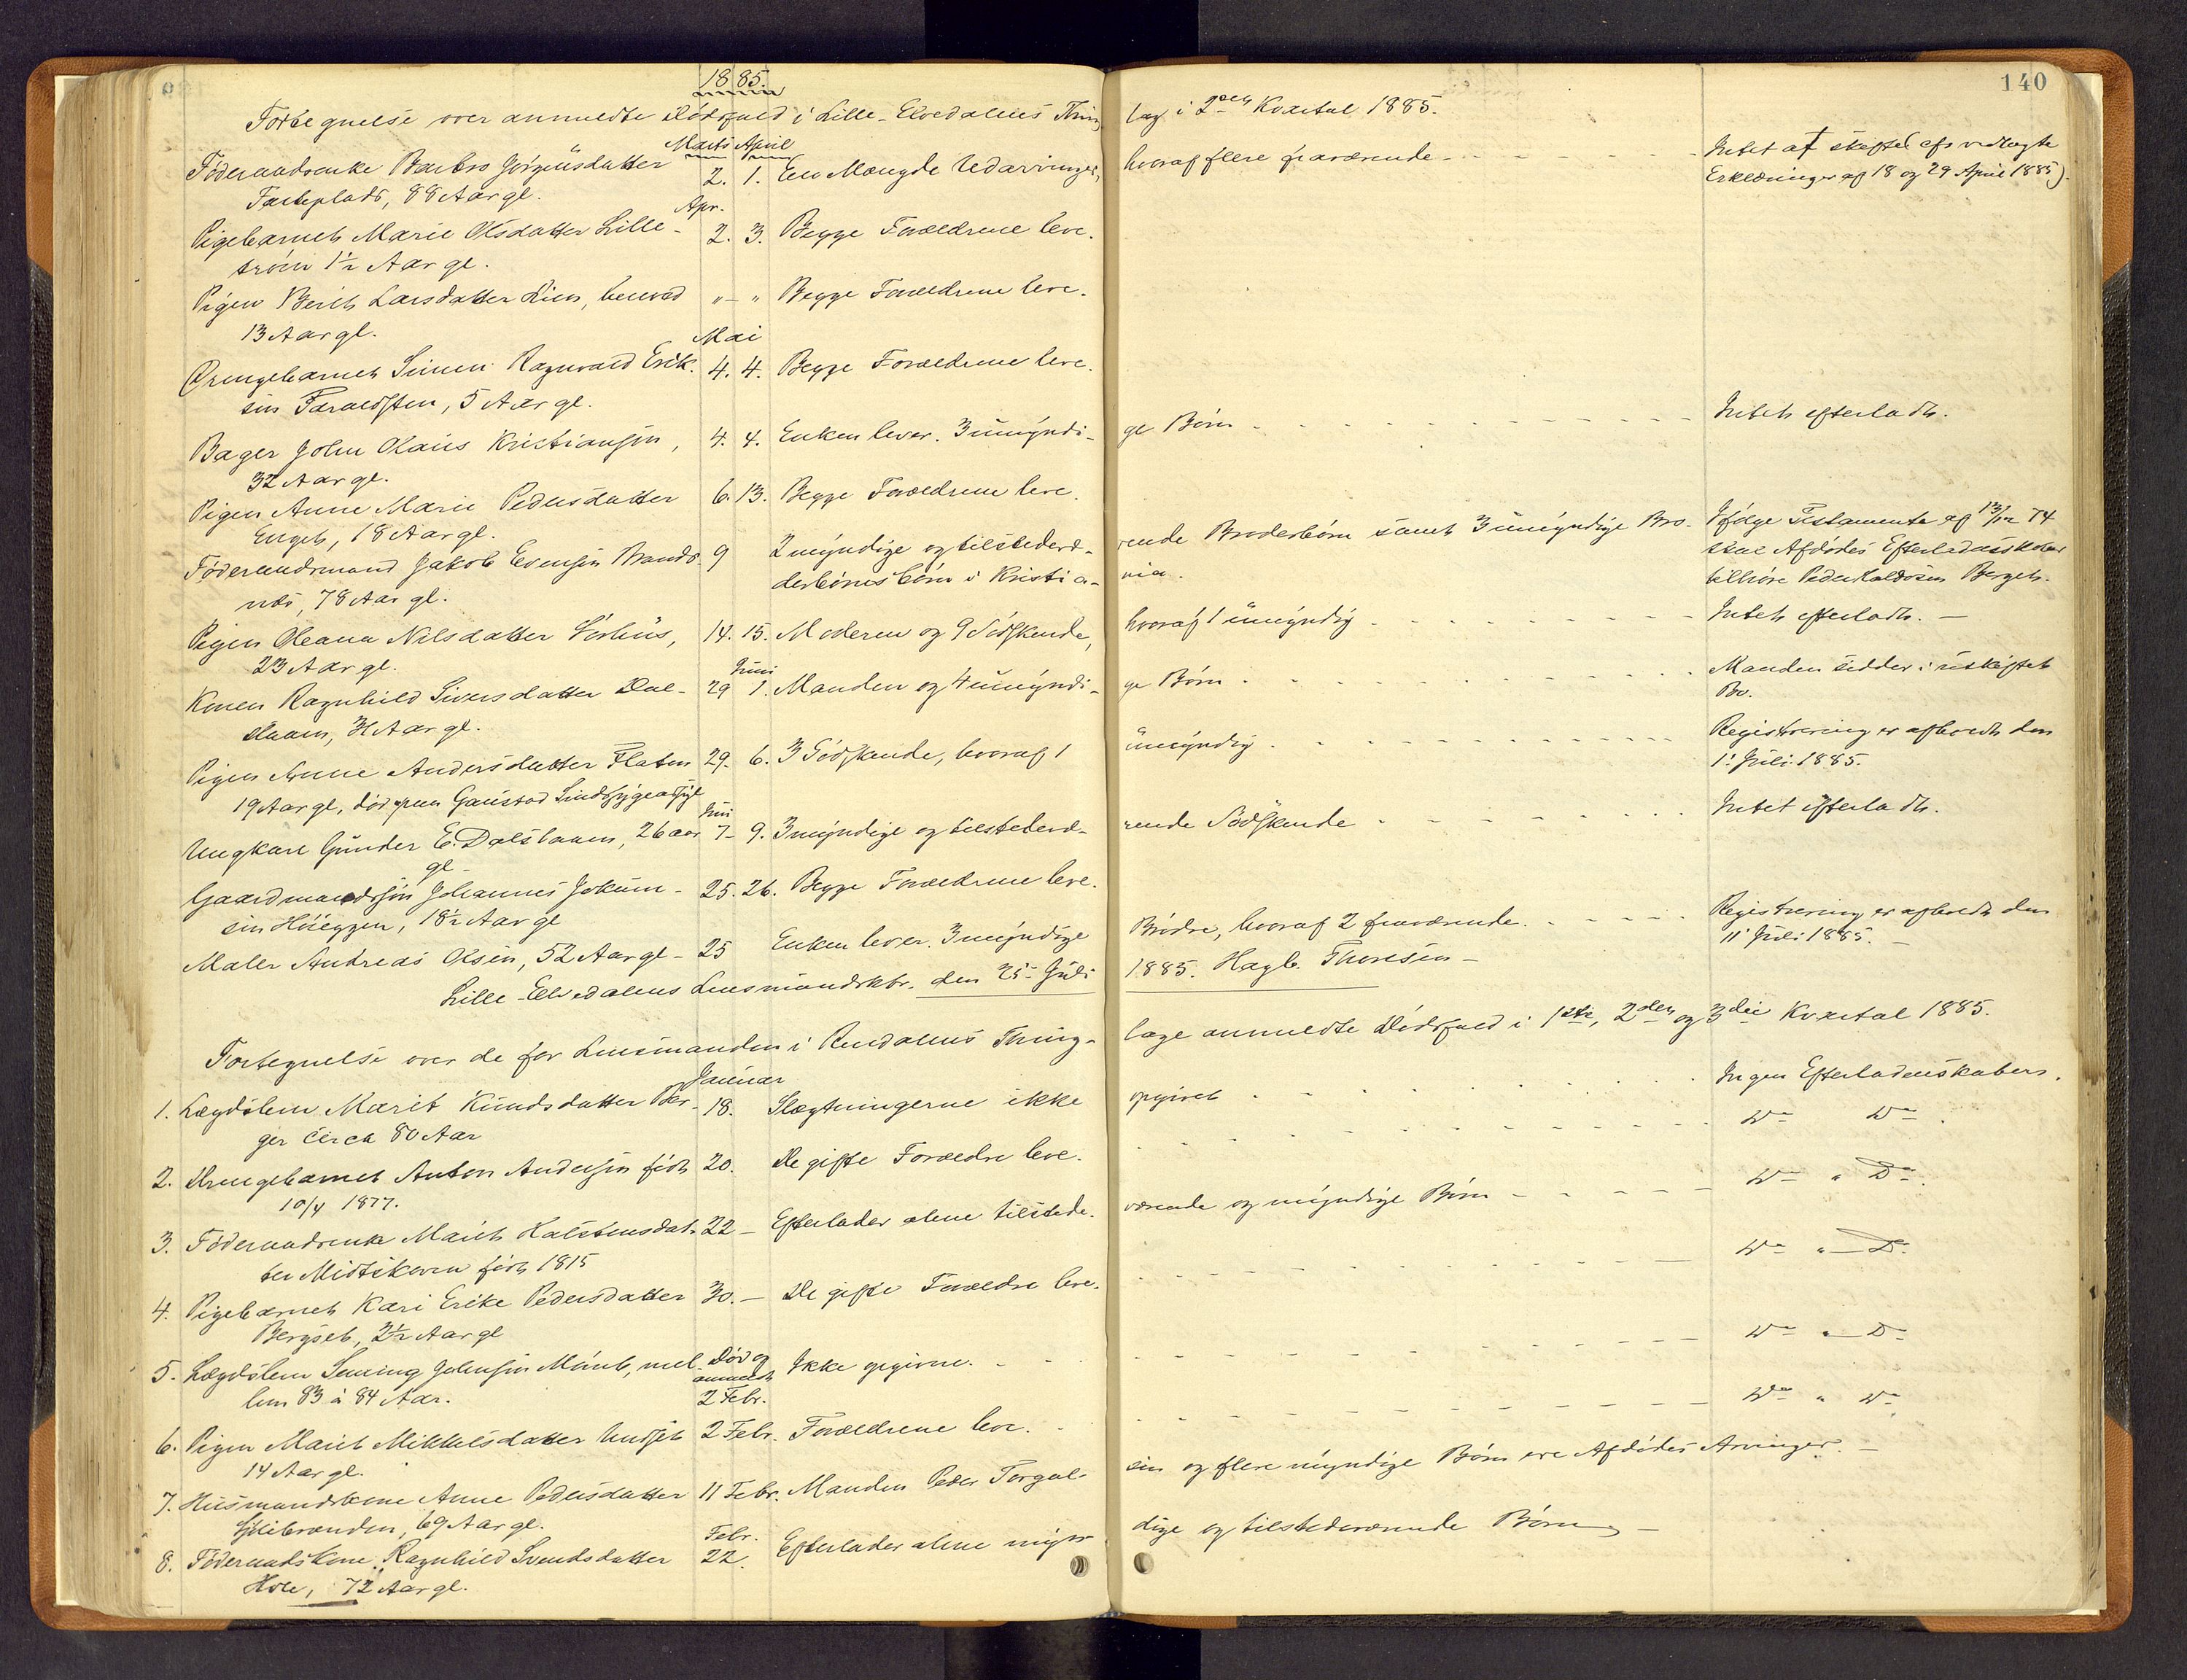 140
1885.
Fortegnelse over anmeldte Dødsfald i Lille-Elvedalens Thinglag i 2den Kvartal 1885.
Marts April
Føderaadsenke Barbro Jørgensdatter 2. 1. En Mængde Udarvinger, hvoraf flere fraværende - Intet at skifte (efr vedlagte
plads, 88 Aar gl. Erklæringer af 18 og 29 April 1885).
Apr.
Pigebarnet Marie Olsdatter Lille- 2. 3. Begge Forældrene leve.
strøm 1½ Aar gl.
Pigen Berit Larsdatter Lien, henved " - " Begge Forældrene leve.
13 Aar gl.
Mai
Drengebarnet Simen Ragnvald Erik- 4. 4. Begge Forældrene leve.
sen, 5 Aar gl.
Bager John Olaus Kristiansen, 4. 4. Enken lever. 3 umyndige Børn - Intet efterladt.
32 Aar gl.
Pigen Anne Marie Pedersdatter 6. 13. Begge Forældrene leve.
Enget, 18 Aar gl.
Føderaadsmand Jakob Evensen Brands- 9 2 myndige og tilstedeværende Broderbørn samt 3 umyndige Bro- Ifølge Testamente af 13/12 74
næs, 78 Aar gl. derbørnsbørn i Kristiania. skal Afdødes Efterladenskaber
tilhøre Peder Berget.
Pigen Oleana Nilsdatter Sørhus, 14. 15. Moderen og 9 Sødskende, hvoraf 1 umyndig - Intet efterladt. -
23 Aar gl.
Juni
Konen Ragnhild Siversdatter Dal- 29 1. Manden og 4 umyndige Børn - Manden sidder i uskiftet
Aar gl. Bo.
Pigen Anne Andersdatter Flaten 29. 6. 3 Sødskende, hvoraf 1 umyndig - Registrering er afholdt den
19 Aar gl, død paa Gaustad Sindssygeasyl 1. Juli 1885.
Juni
Ungkarl Gunder E. Dalsbaaen, 26 aar 7- 9. 3 myndige og tilstedeværende Sødskende - Intet efterladt.
gl-
Gaardmandssøn Johannes Jokum- 25. 26. Begge Forældrene leve.
sen Høeggen, 18½ Aar gl
Maler Andreas Olsen, 52 Aar gl - 25 Enken lever. 3 myndige Brødre, hvoraf 2 fraværende. - Registrering er afholdt den
11 Juli 1885. -
Lille-Elvedalens Lensmandskt. den 25- Juli 1885. Hagb. Thoresen -
Fortegnelse over de for Lensmanden i Rendalens Thinglage anmeldte Dødsfald i 1ste, 2den og 3die Kvartal 1885.
Januar
1. Lægdslem Marit Knudsdatter Ber- 18. Slægtningerne ikke opgivet - Ingen Efterladenskaber.
ger circa 80 Aar
2. Drengebarnet Anton Andersen født 20. De gifte Forældre leve. - Do Do.
10/4 1877.
3. Føderaadsenke Marit Halstensdat- 22 - Efterlader alene tilstedeværende og myndige Børn - Do " Do.
ter Midtskoven født 1815
4. Pigebarnet Kari Erike Pedersdatter 30. - De gifte Forældre leve. - Do " Do
Bergset, 2½ Aar gl
5. Lægdslem Johnsen, mel- Død og anmeldt 2 Febr. Ikke opgivne. - Do " Do
lem 83 à 84 Aar.
6. Pigen Marit Mikkelsdatter Undset 2 Febr. Forældrene leve. - Do " Do
14 Aar gl.
7. Husmandskone Anne Pedersdatter 11 Febr. Manden Peder Torgalsen og flere myndige Børn ere Afdødes Arvinger. -
69 Aar gl.
Febr.
8. Føderaadskone Ragnhild Svendsdatter 22. Efterlader alene myndige og tilstedeværende Børn -
Hole, 72 Aar gl.